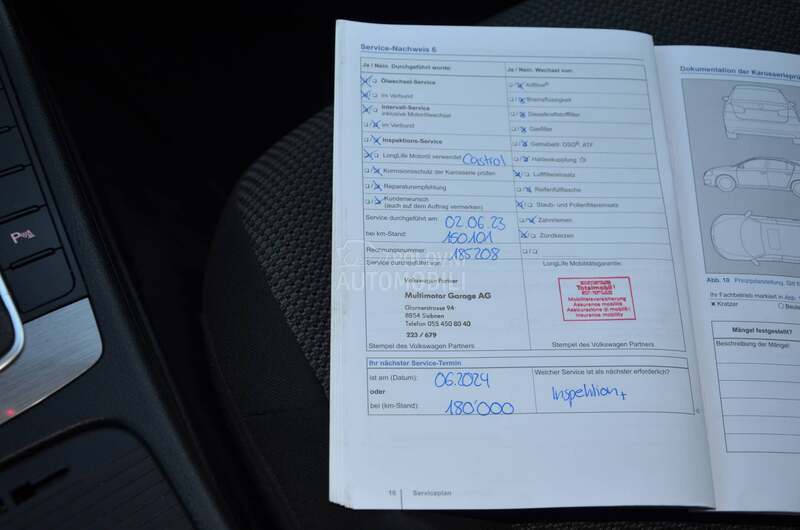 Service-Nachweis 6
Ja / Nein. Durchgeführt wurde:
Ölwechsel-Service
im Verbund
Intervall-Service
inklusive Motorölwechsel
im Verbund
Inspektions-Service
LongLife Motoröl verwendet Castrol
Korrosionsschutz der Karosserie prüfen
Reparaturempfehlung
Kundenwunsch
(auch auf dem Auftrag vermerken)
Service durchgeführt am: 02.06.23
bei km-Stand: 150101
Rechnungsnummer: 185208
Service durchgeführt von:
Volkswagen Partner
Multimotor Garage AG
Glarnerstrasse 94
8854 Siebnen
Telefon 055 450 80 40
223 / 679
Stempel des Volkswagen Partners
Ja / Nein. Wechsel von:
AdBlue®
Bremsflüssigkeit
Dieselkraftstofffilter
Gasfilter
Getriebeöl: DSG®, ATF
Haldexkupplung: Öl
Luftfiltereinsatz
Reifenfüllflasche
Staub- und Pollenfiltereinsatz
Zahnriemen
Zündkerzen
LongLife Mobilitätsgarantie:
Totalmobil!
Mobilitätsversicherung
Assurance mobilité
Assicurazione di mobilità
Insurance mobility
Stempel des Volkswagen Partners
Ihr nächster Service-Termin
ist am (Datum): 06.2024
oder
bei (km-Stand): 180'000
Welcher Service ist als nächster erforderlich?
Inspektion +
16 Serviceplan
Dokumentation der Karosserieprü
Abb. 18 Prinzipdarstellung. Gilt f
Ihr Fachbetrieb markiert in Abb.
Kratzer
Beule
Mängel festgestellt?
Beschreibung der Mängel:
POLOVNI
AUTOMOBILI
P